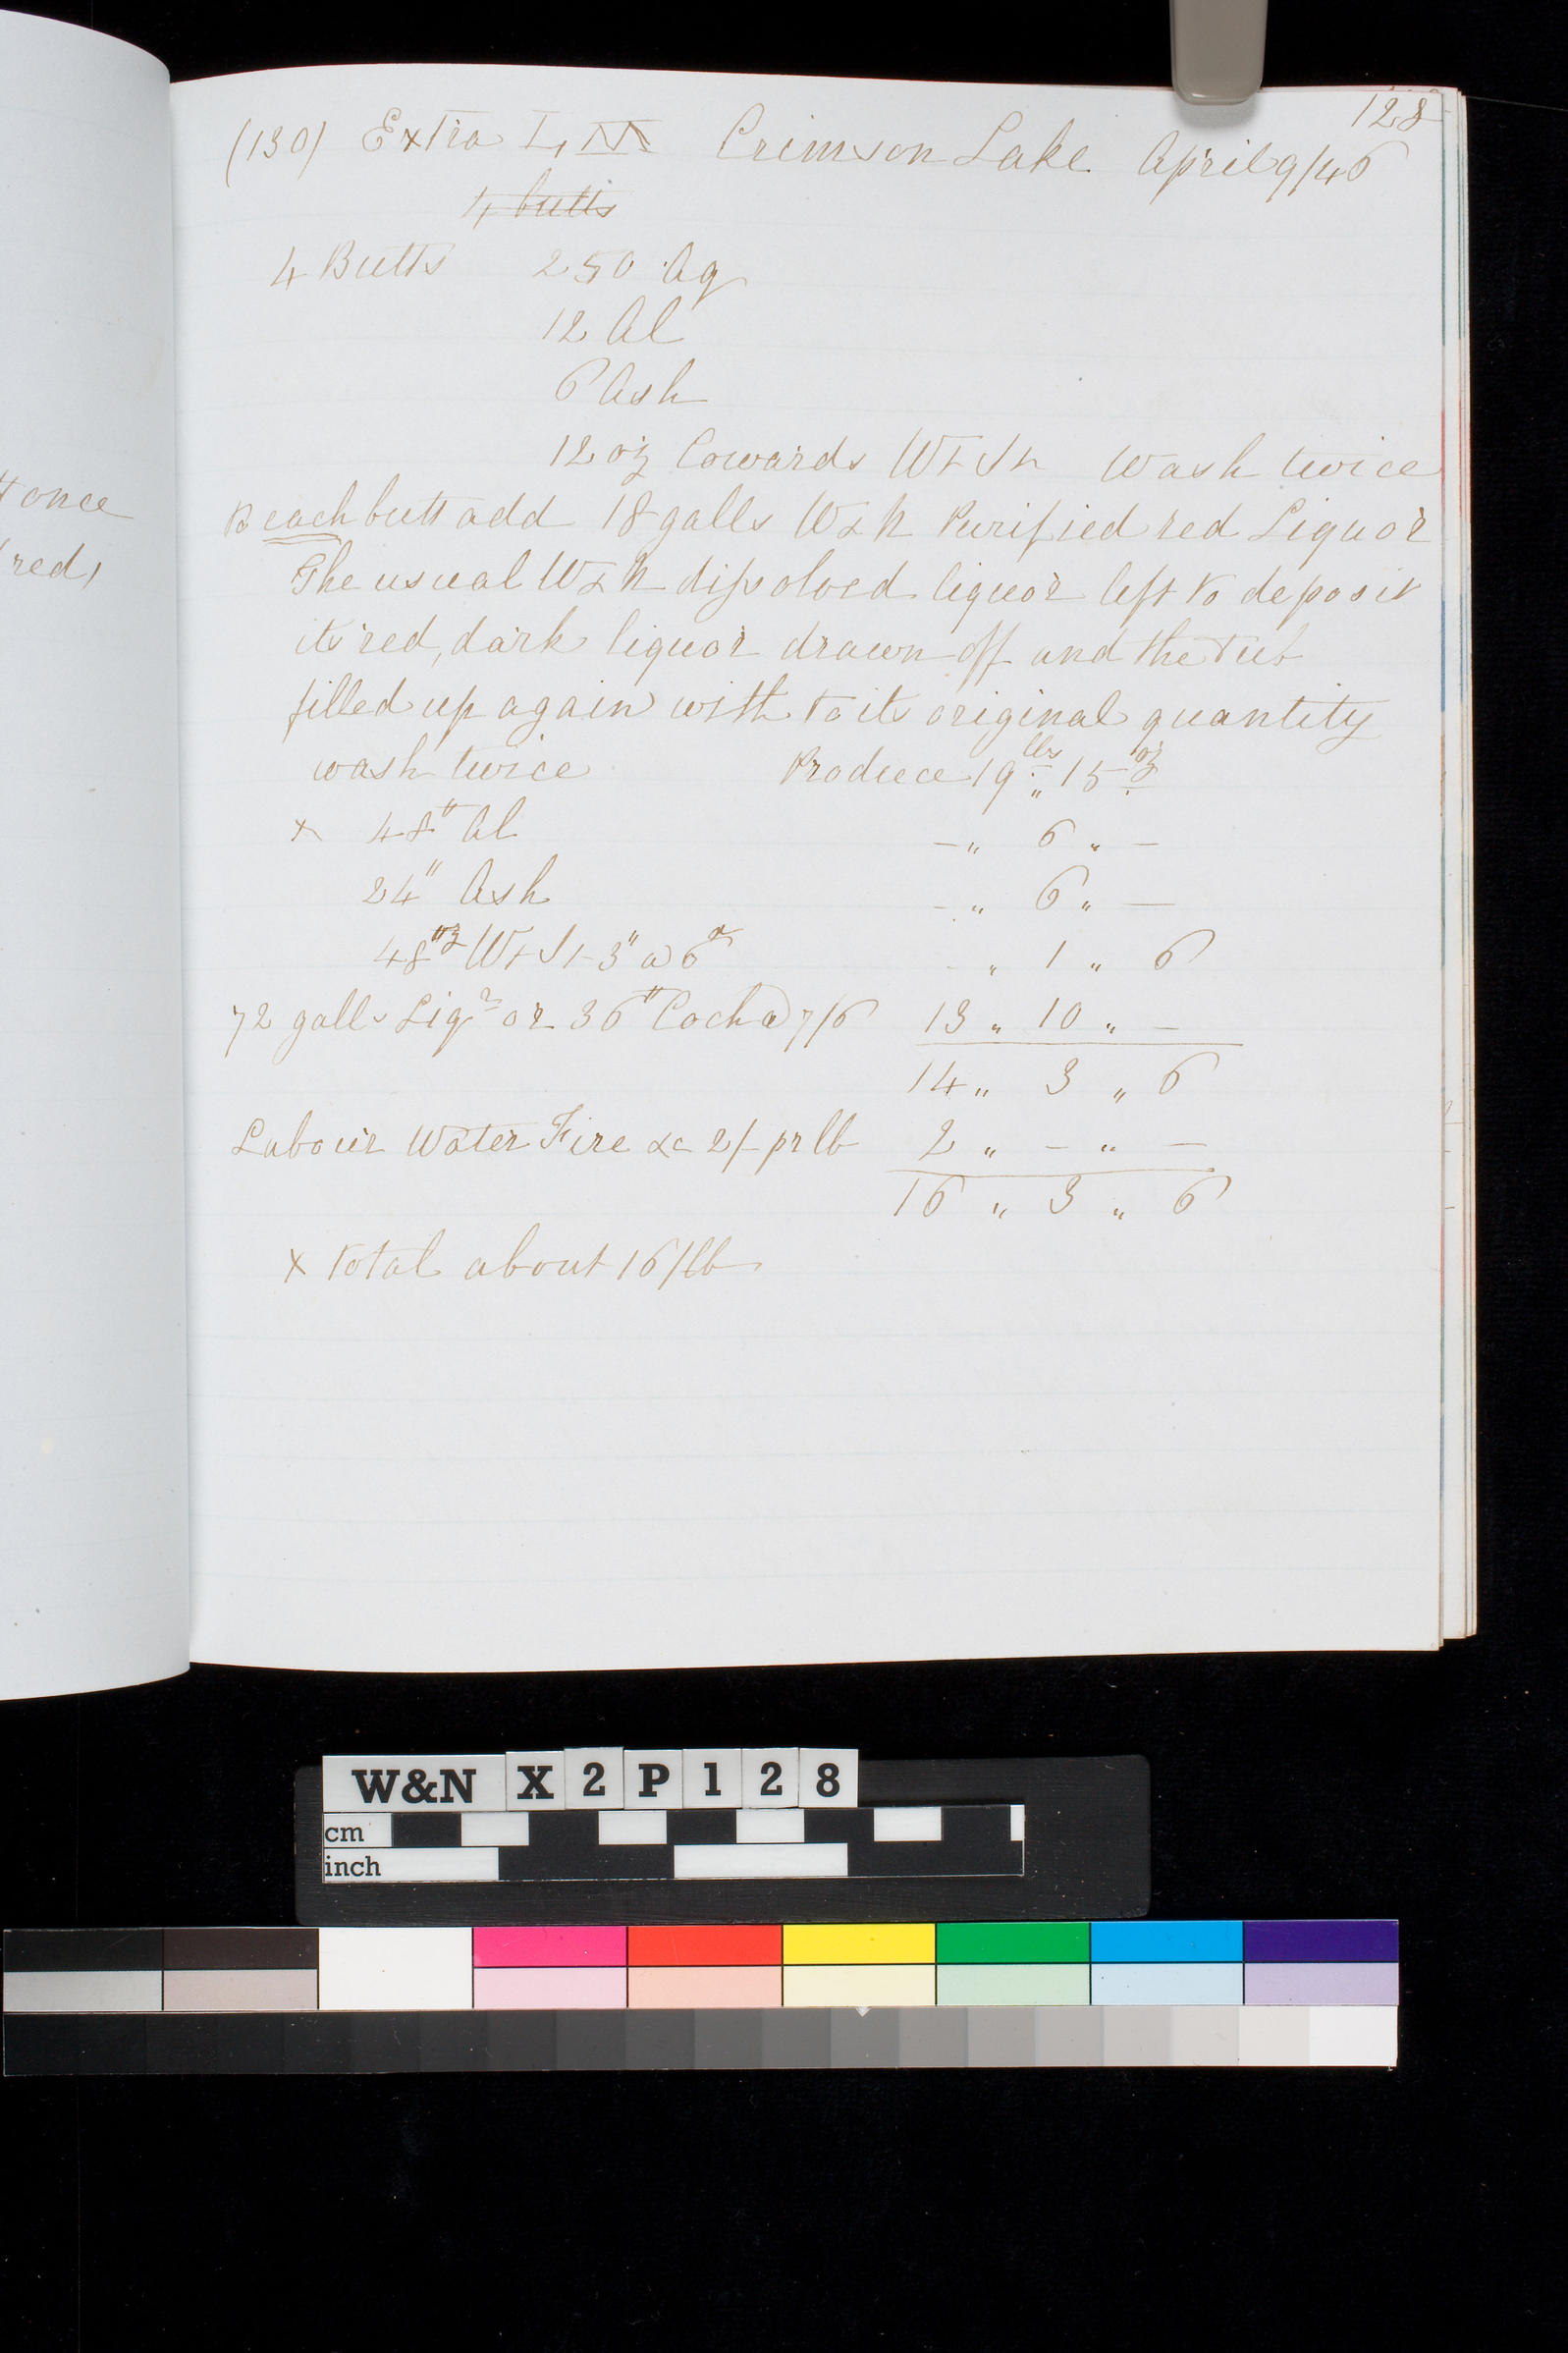 128
(130) Extra Crimson Lake April 9/46
4 butts
4 Butts 250 Aq
12 Al
6 Ash
12 oz Cowards Wash twice
each butt add 18 galls W&N Purified red Liquor
The usual W&N dissolved liquor left to deposit
its red, dark liquor drawn off and the Tub
filled up again with to its original quantity
wash twice Produce 19 lbs " 15 oz
x 48" Al - " 6 " -
24" Ash - " 6 " -
48 oz - " 1 " 6
72 galls Liqr or 36" Coch @ 7/6 13 " 10 " -
14 " 3 " 6
Labour Water Fire &c 2/- pr lb 2 " - " -
16 " 3 " 6
x total about 16/lb
once
red,
W&N X2P128
cm
inch